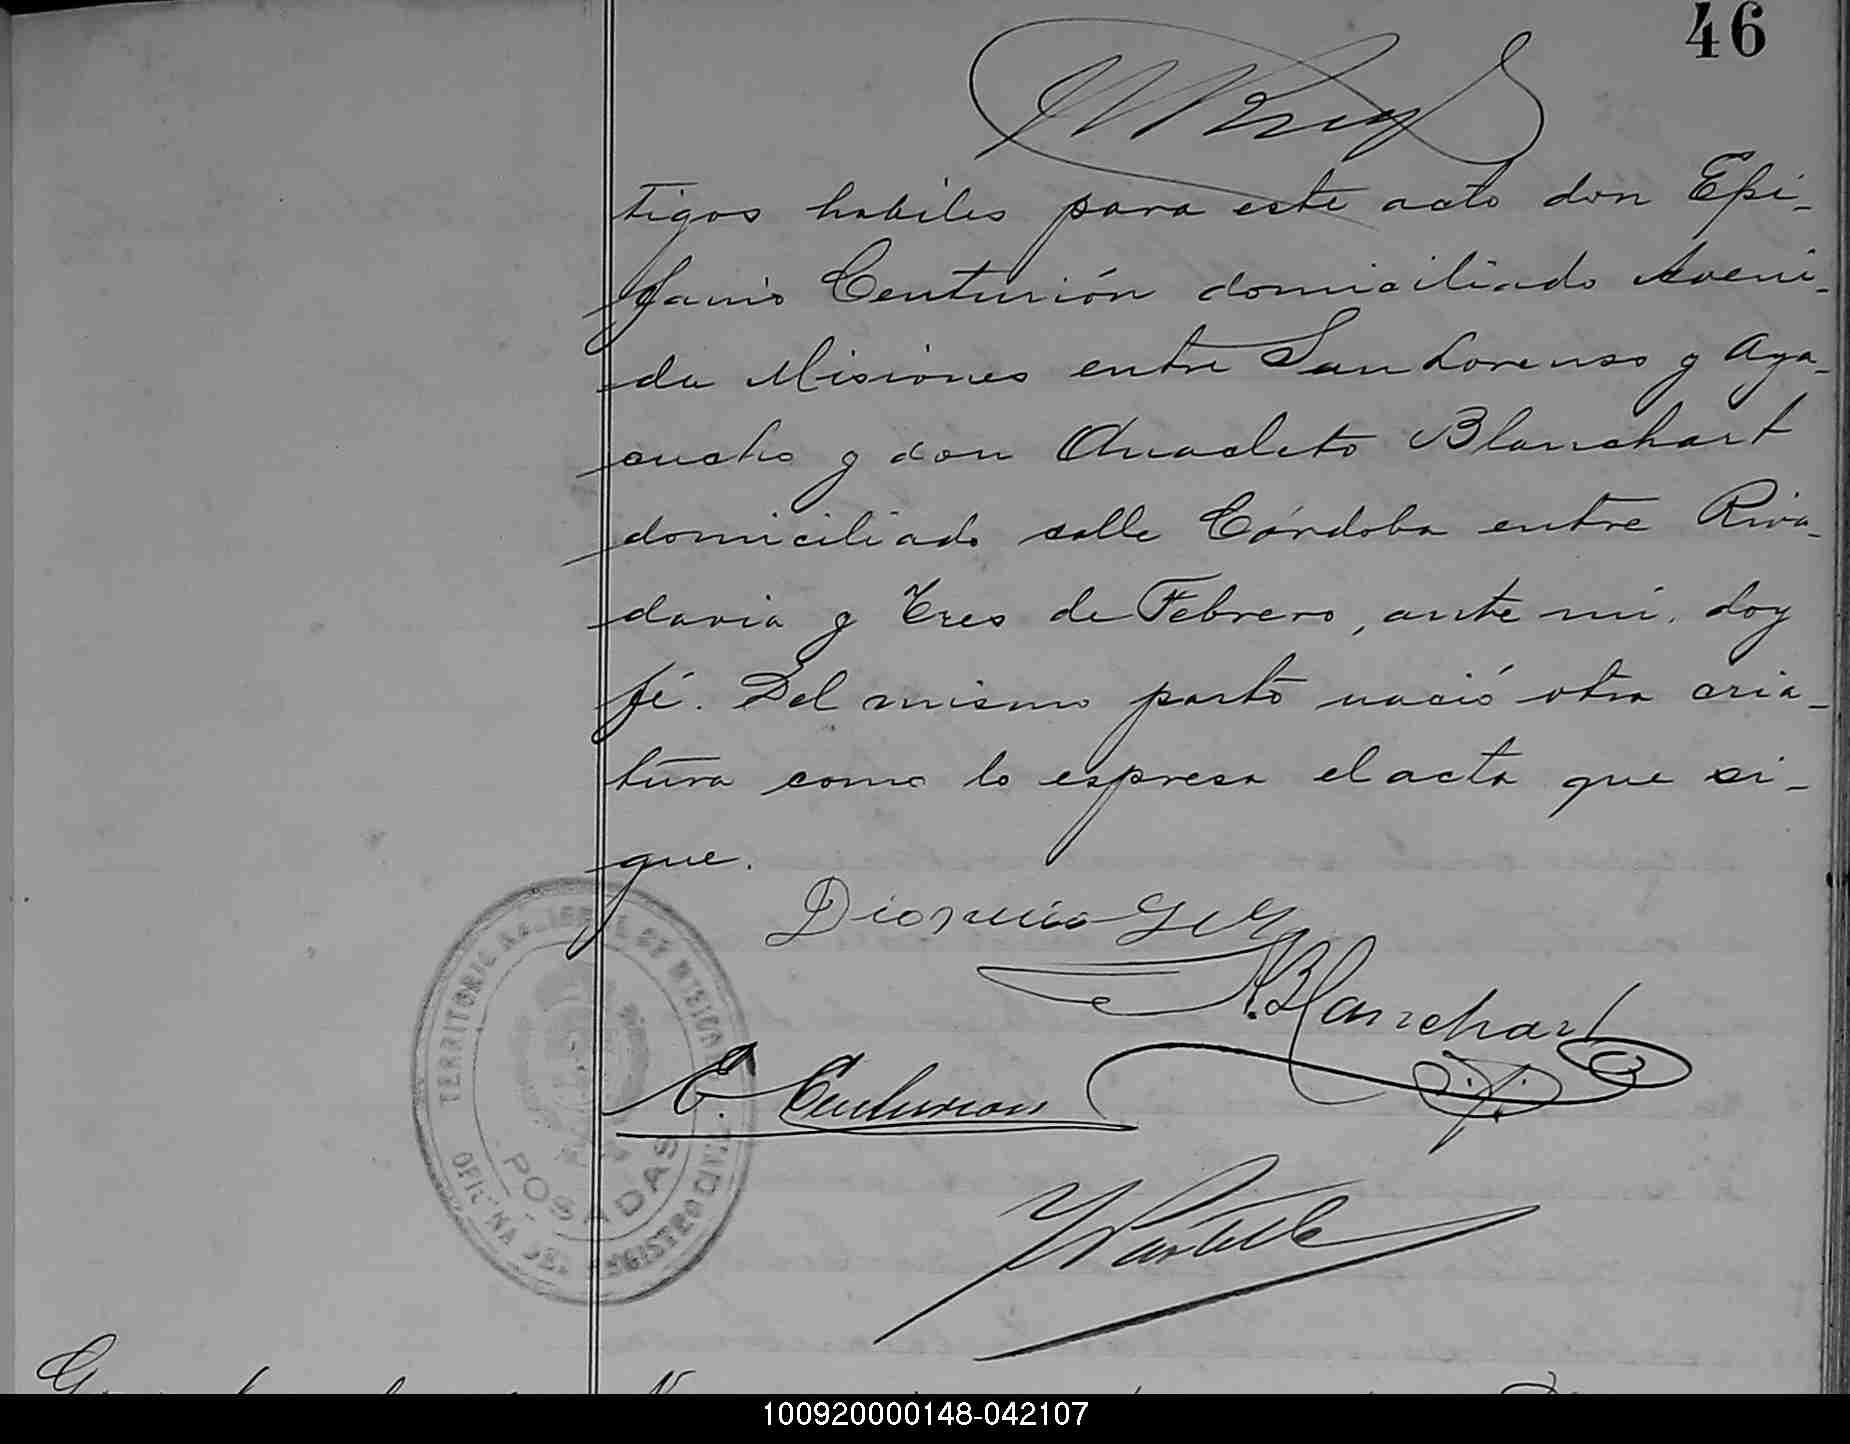 46
tigos habiles para este acto don Epi-
fanio Centurión domiciliado Aveni-
da Misiones entre San Lorenso y Aya-
cucho y don Anacleto Blanchart
domiciliado calle Córdoba entre Riva-
davia y Tres de Febrero, ante mí, doy
fé. Del mismo parto nació otra cria-
tura como lo espresa el acta que si-
gue.
Dionicio
A. Blanchart
E. Centurion
TERRITORIO NACIONAL DE MISIONES
OFICINA DEL REGISTRO CIVIL
POSADAS
100920000148-042107